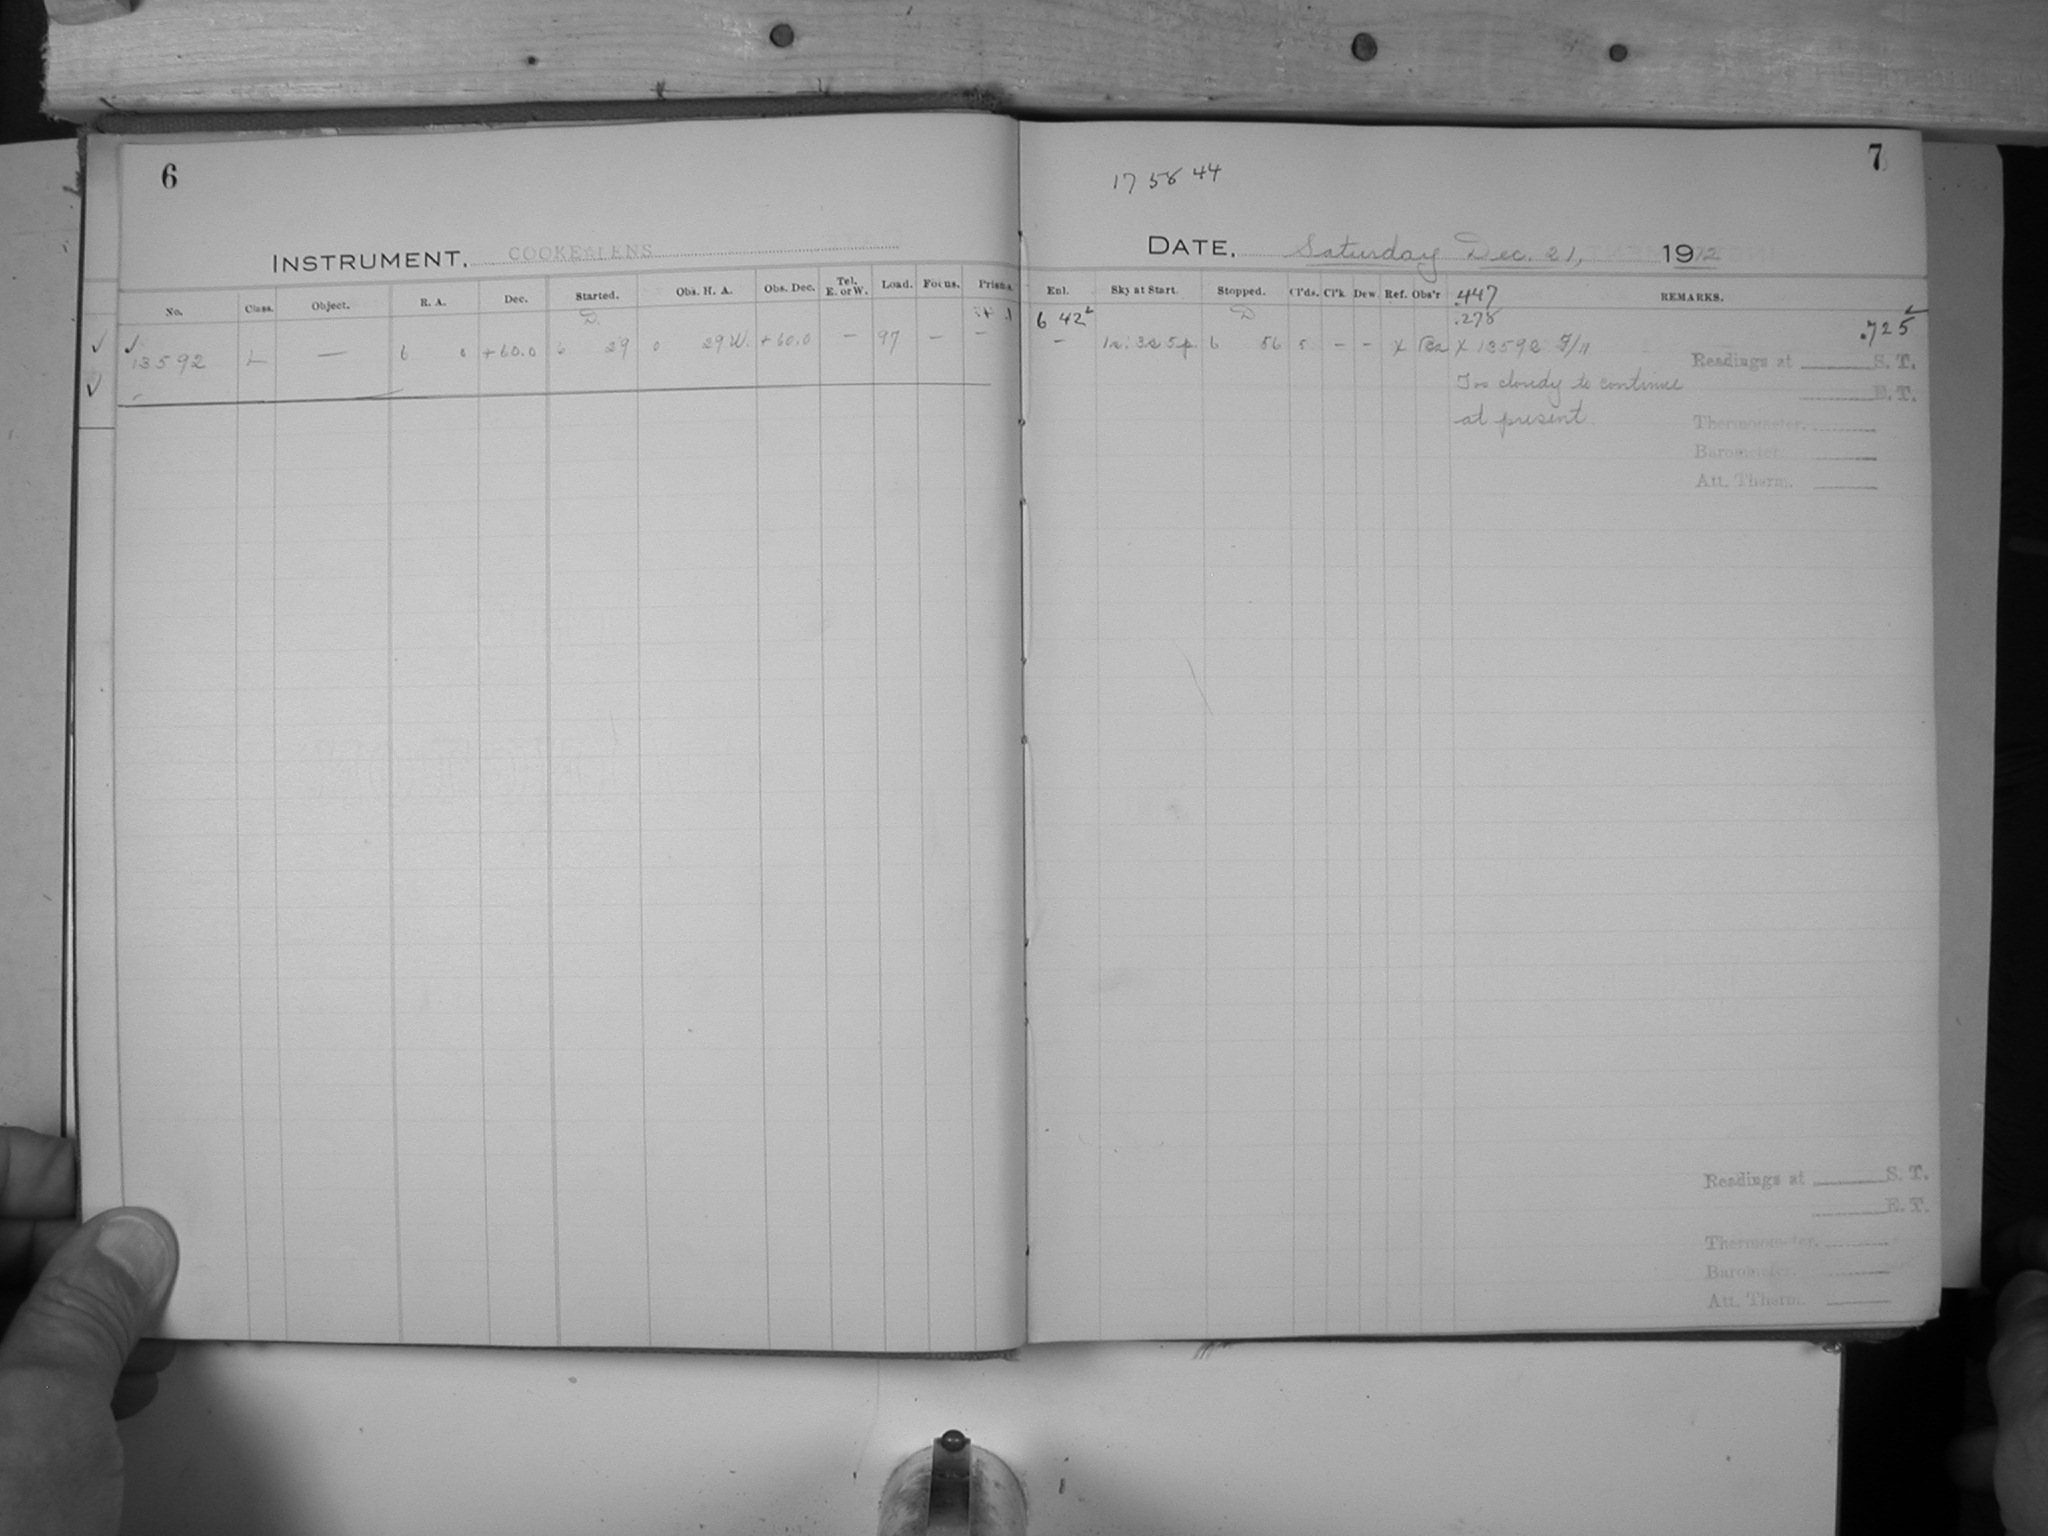 6
INSTRUMENT. COOKE LENS
No. Class. Object. R. A. Dec. Started. Obs. H. A. Obs. Dec. Tel. E. or W. Load. Focus. Prisms.
D.
✓ ✓ 13592 L — 6 0 +60.0 6 29 0 29 W. +60.0 — 97 — —
✓
7
17 58 44
DATE, Saturday Dec. 21, 1912
Enl. Sky at Start. Stopped. Cl'ds. Cl'k Dew. Ref. Obs'r .447 REMARKS.
6 42 D .278 .725
— 6 56 5 — — X X 13592
Too cloudy to continue
at present
Readings at S. T.
E. T.
Thermometer.
Barometer.
Att. Therm.
Readings at S. T.
E. T.
Thermometer.
Barometer.
Att. Therm.